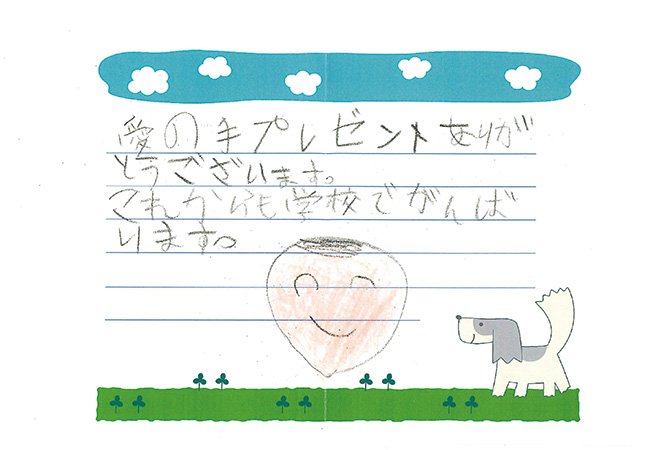 愛の手プレゼントありが
とうございます。
これからも学校でがんば
ります。